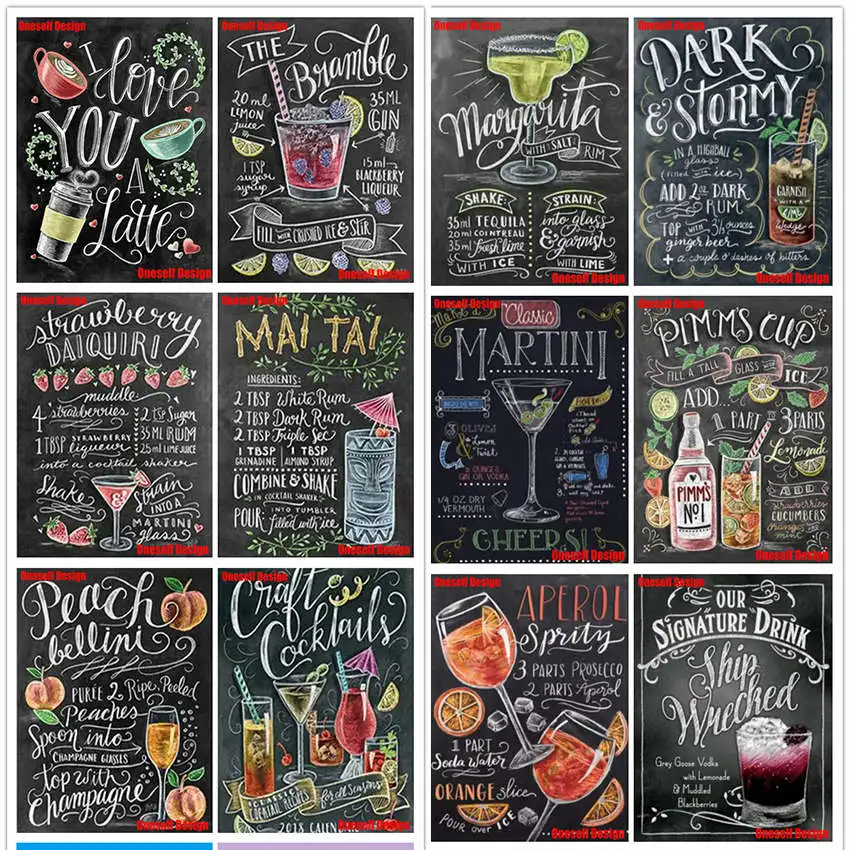 Oneself Design
I love
YOU
A
Latte
Oneself Design
Oneself Design
THE
Bramble
20ml
LEMON
juice
35ML
GIN
1 TSP
sugar
syrup
15ml
BLACKBERRY
LIQUEUR
FILL WITH CRUSHED ICE & STIR
Oneself Design
Oneself Design
Margarita
WITH SALT RIM
SHAKE:
35ml TEQUILA
20ml COINTREAU
35ml fresh lime
WITH ICE
STRAIN:
into glass
& garnish
WITH LIME
Oneself Design
Oneself Design
DARK
& STORMY
IN A HIGHBALL
glass
(filled with ice)
ADD 2oz DARK
RUM
TOP WITH 3½ ounces
ginger beer
+ a couple o' dashes of bitters
GARNISH
WITH A
LIME
Wedge
Oneself Design
Oneself Design
strawberry
DAIQUIRI
muddle
4 strawberries
1 TBSP STRAWBERRY
liqueur
2 tsp Sugar
35 ML RUM
25ml LIME JUICE
into a cocktail shaker
Shake
&
strain
INTO A
MARTINI
glass
Oneself Design
Oneself Design
MAI TAI
INGREDIENTS:
2 TBSP White Rum
2 TBSP Dark Rum
2 TBSP Triple Sec
1 TBSP GRENADINE
1 TBSP ALMOND SYRUP
COMBINE & SHAKE
IN COCKTAIL SHAKER
POUR INTO TUMBLER
filled with ice
Oneself Design
Oneself Design
Make a
Classic
MARTINI
INGREDIENTS
3 OLIVES
Lemon
Twist
2 OUNCES
GIN OR VODKA
1/4 OZ. DRY
VERMOUTH
CHEERS!
Oneself Design
Oneself Design
PIMM'S CUP
FILL A TALL GLASS WITH ICE
ADD...
1 PART
PIMM'S
No 1
3 PARTS
Lemonade
ADD
strawberries
CUCUMBERS
orange
mint
Oneself Design
Oneself Design
Peach
bellini
PURÉE 2 Ripe, Peeled
Peaches
Spoon into
CHAMPAGNE GLASSES
top with
Champagne
Oneself Design
Oneself Design
Craft
Cocktails
CLASSIC
COCKTAIL RECIPES
for all Seasons
2018 CALENDAR
Oneself Design
Oneself Design
APEROL
Spritz
3 PARTS PROSECCO
2 PARTS Aperol
1 PART
Soda Water
ORANGE slice
POUR over ICE
Oneself Design
Oneself Design
OUR
SIGNATURE DRINK
Ship
Wrecked
Grey Goose Vodka
with Lemonade
& Muddled
Blackberries
Oneself Design